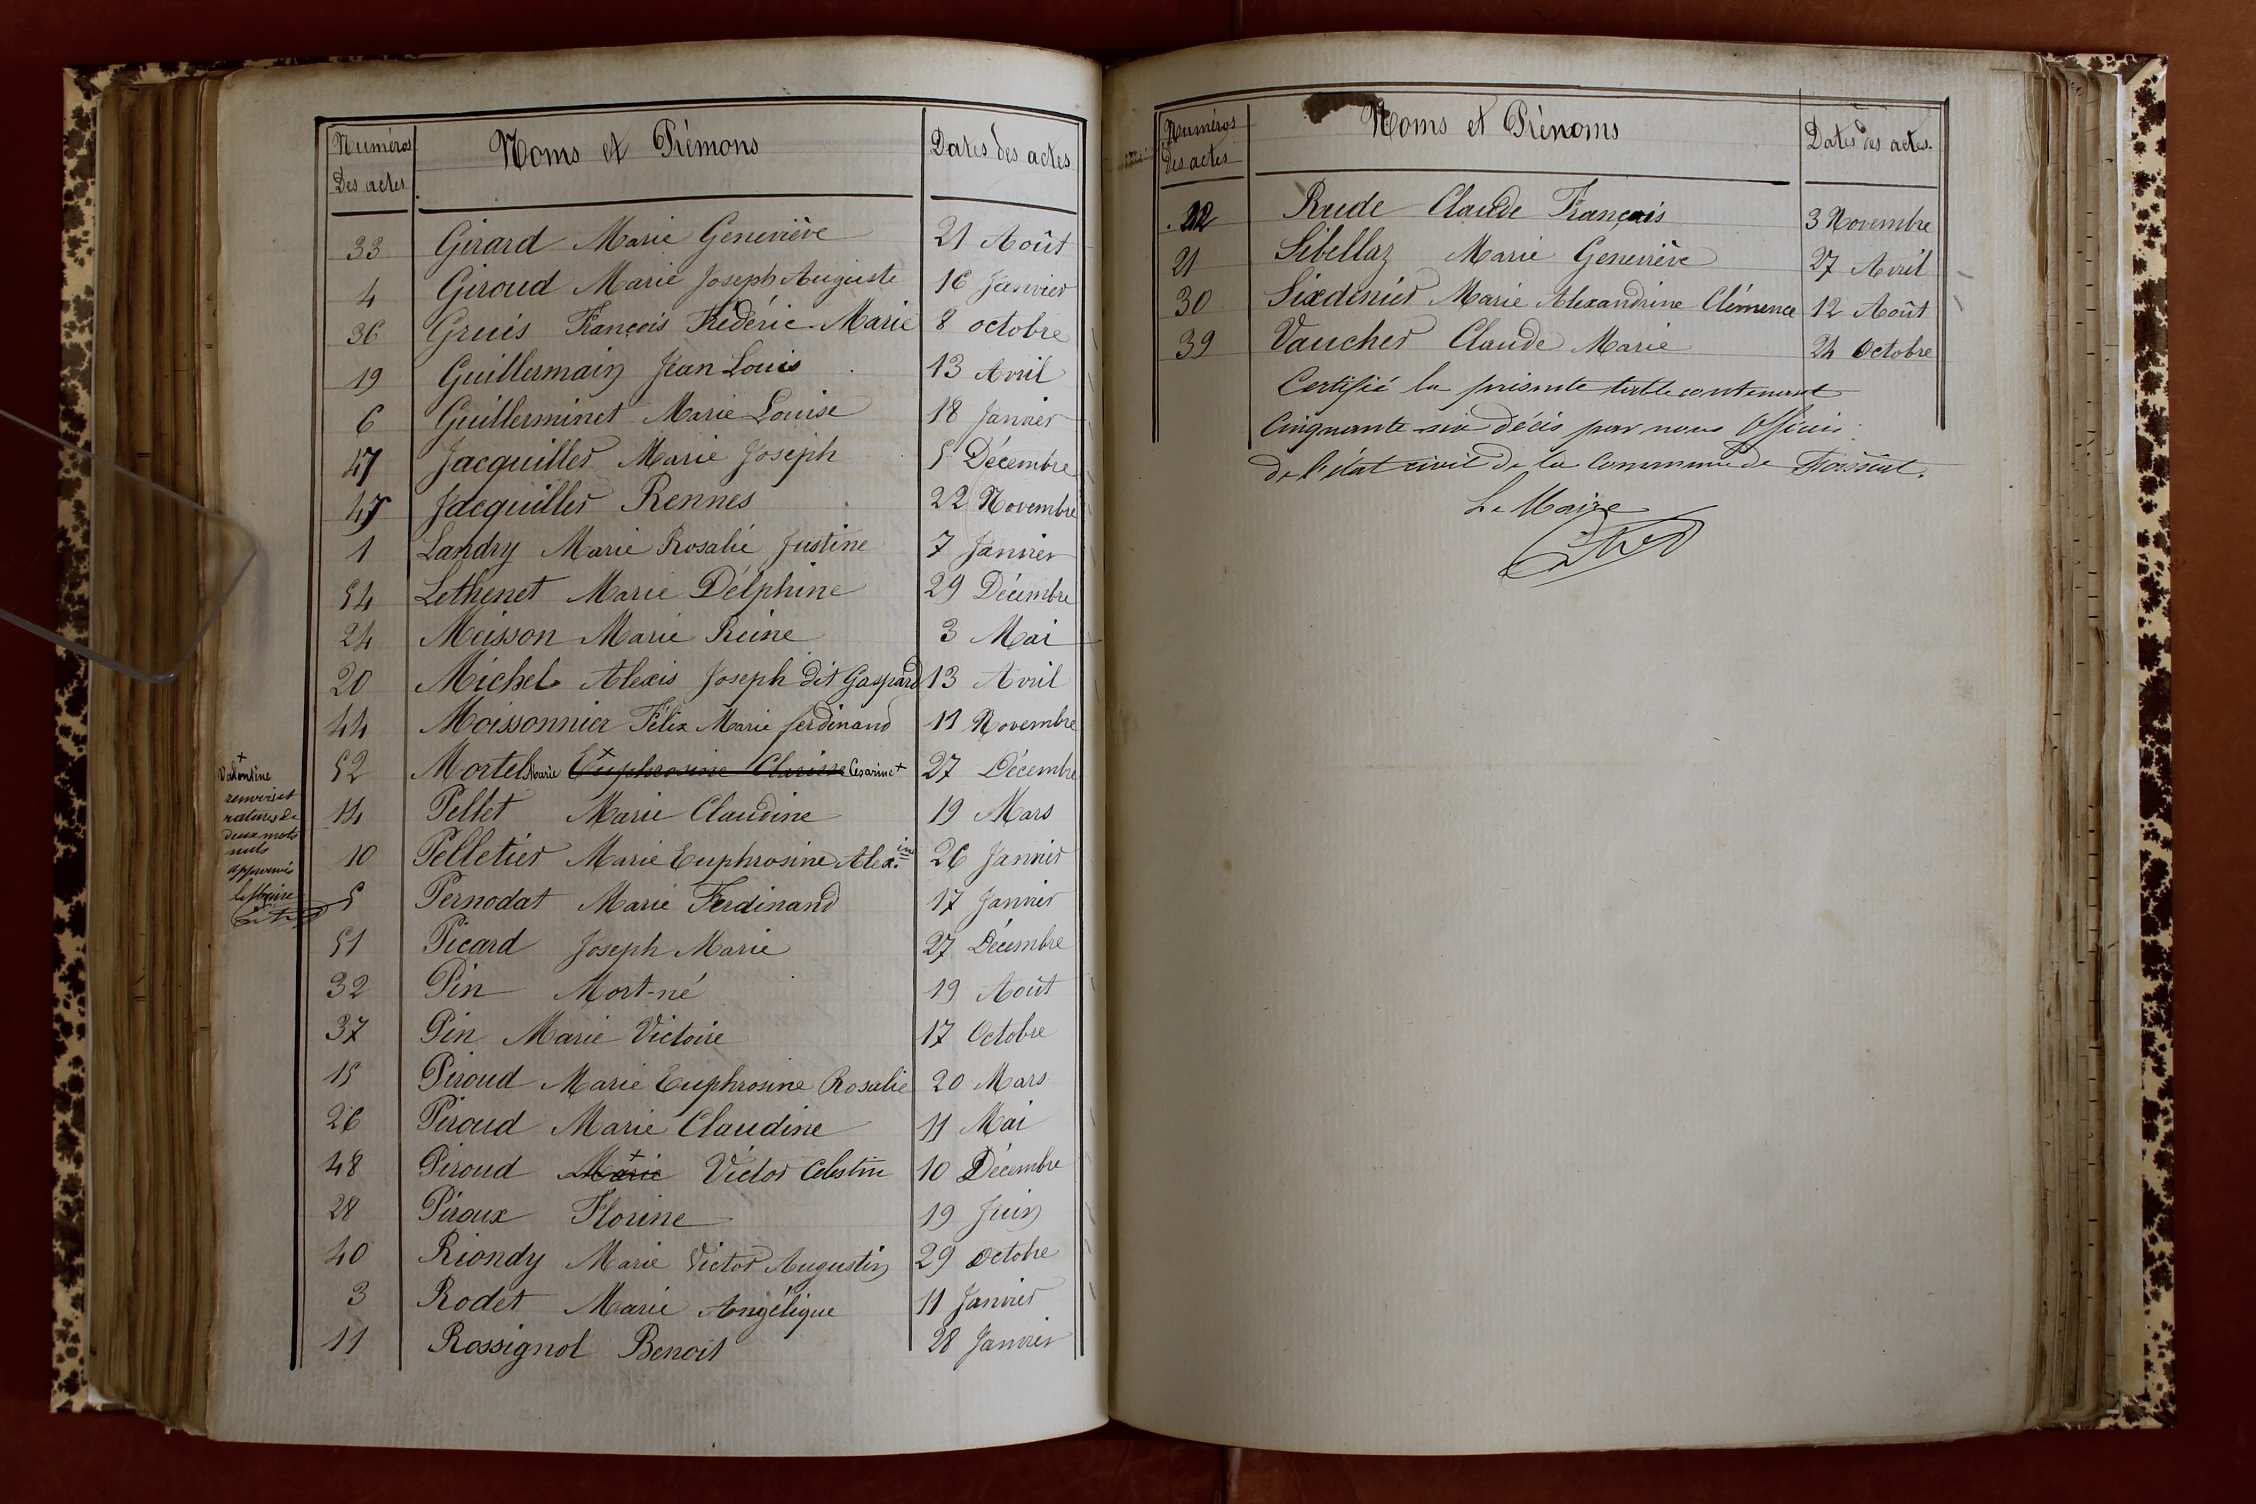 Numéros Des actes Noms et Prémons Dates des actes
33 Girard Marie Geneviève 21 Août
4 Giroud Marie Joseph Auguste 16 Janvier
36 Gruis François Frédéric Marie 8 octobre
19 Guillermain Jean Louis 13 Avril
6 Guillerminet Marie Louise 18 Janvier
47 Jacquiller Marie Joseph 5 Décembre
45 Jacquiller Rennes 22 Novembre
1 Landry Marie Rosalie Justine 7 Janvier
54 Lethenet Marie Délphine 29 Décembre
24 Meisson Marie Reine 3 Mai
20 Michel Alexis Joseph dit Gaspard 13 Avril
44 Moissonnier Félix Marie ferdinand 11 Novembre
52 Mortel Marie Euphrosine Clarisse Cesarine + 27 Décembre
14 Pellet Marie Claudine 19 Mars
10 Pelletier Marie Euphrosine Alex.ine 26 Janvier
5 Pernodat Marie Ferdinand 17 Janvier
51 Picard Joseph Marie 27 Décembre
32 Pin Mort-né 19 Août
37 Pin Marie Victoire 17 Octobre
15 Piroud Marie Euphrosine Rosalie 20 Mars
26 Piroud Marie Claudine 11 Mai
48 Piroud Marie Victor Celestin 10 Décembre
28 Piroux Florine 19 Juin
40 Riondy Marie Victor Augustin 29 Octobre
3 Rodet Marie Angélique 11 Janvier
11 Rossignol Benoit 28 Janvier
+
Valentine
renvoi et
ratures de
deux mots
nuls
approuvés
le Maire
Numéros Des actes Noms et Prénoms Dates des actes
Rude Claude François 3 Novembre
21 Sibellaz Marie Geneviève 27 Avril
30 Sixdenier Marie Alexandrine Clémence 12 Août
39 Vaucher Claude Marie 24 Octobre
Certifié la présente table contenant
Cinquante six décès par nous Officier
de l'état civil de la Commune de
Le Maire